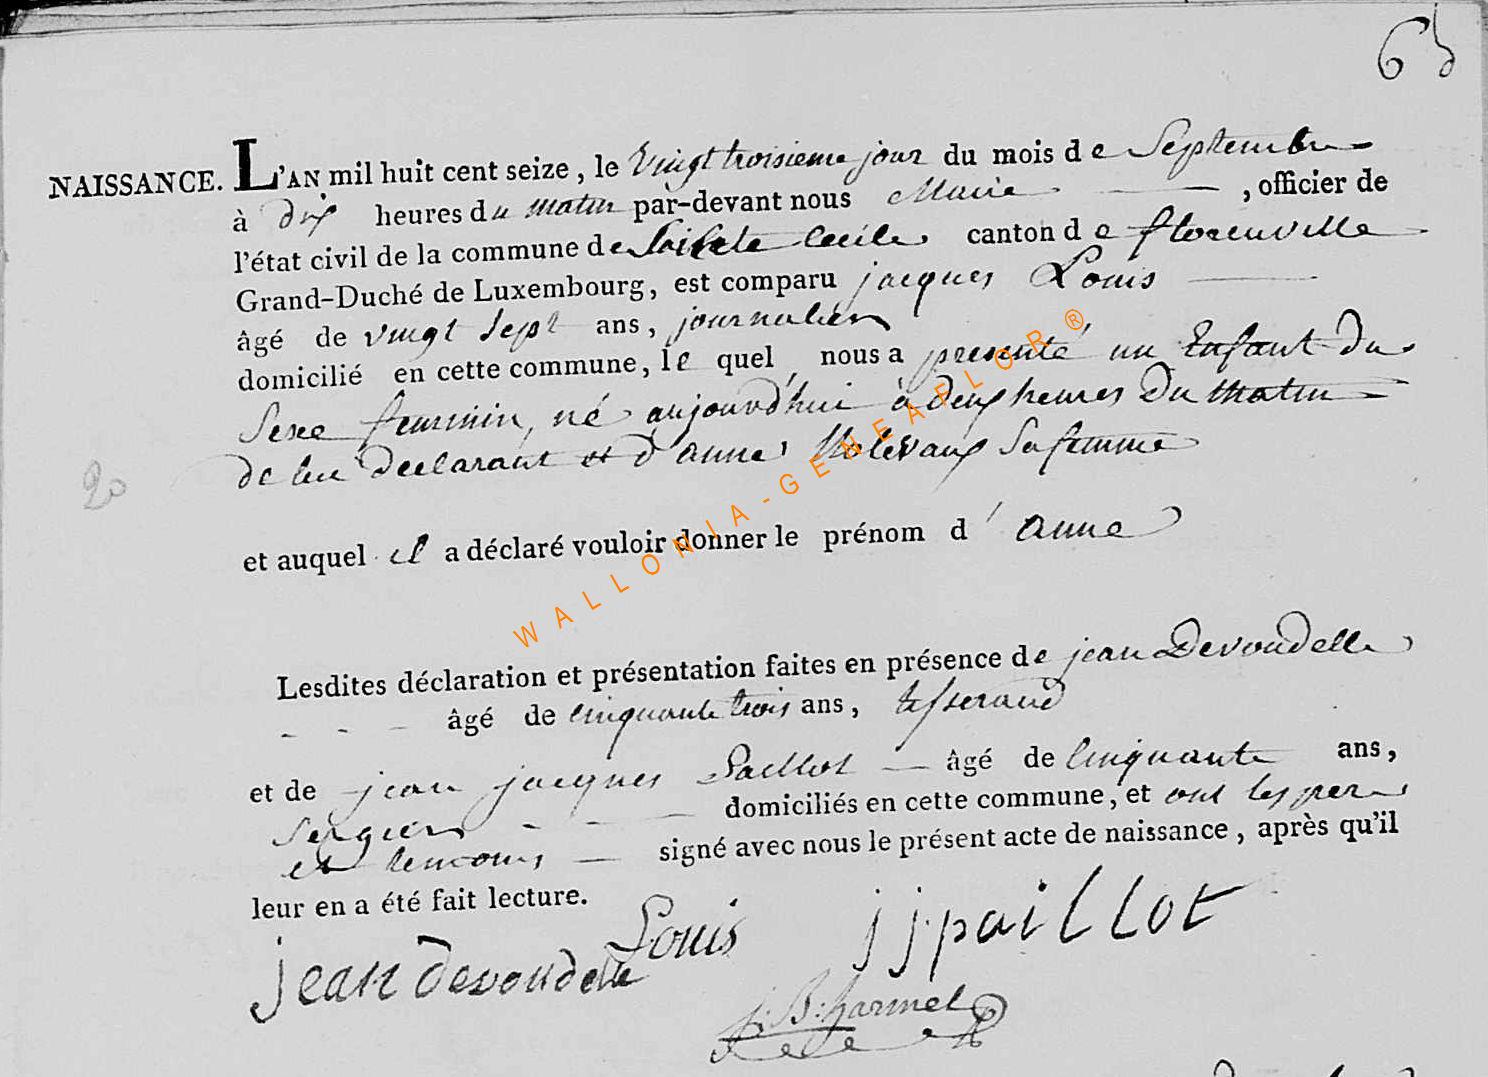 65
NAISSANCE. L'AN mil huit cent seize, le vingt troisieme jour du mois de Septembre
à dix heures du matin par-devant nous Maire , officier de
l'état civil de la commune de Sainte Cecile canton de florenville
Grand-Duché de Luxembourg, est comparu jacques Louis
âgé de vingt sept ans, journalier
domicilié en cette commune, le quel nous a presenté un Enfant du
Sexe feminin, né aujourd'hui à deux heures Du matin
de lui declarant et d'anne Sa femme
20
et auquel il a déclaré vouloir donner le prénom d'anne
WALLONIA-GENEAFLOR®
Lesdites déclaration et présentation faites en présence de jean Devoudelle
- - - âgé de cinquante trois ans, tisserand
et de jean jacques Paillot — âgé de cinquante ans,
- - domiciliés en cette commune, et ont les pere
et temoins — signé avec nous le présent acte de naissance, après qu'il
leur en a été fait lecture.
Louis jjpaillot
jean devoudelle
j:B:harmel